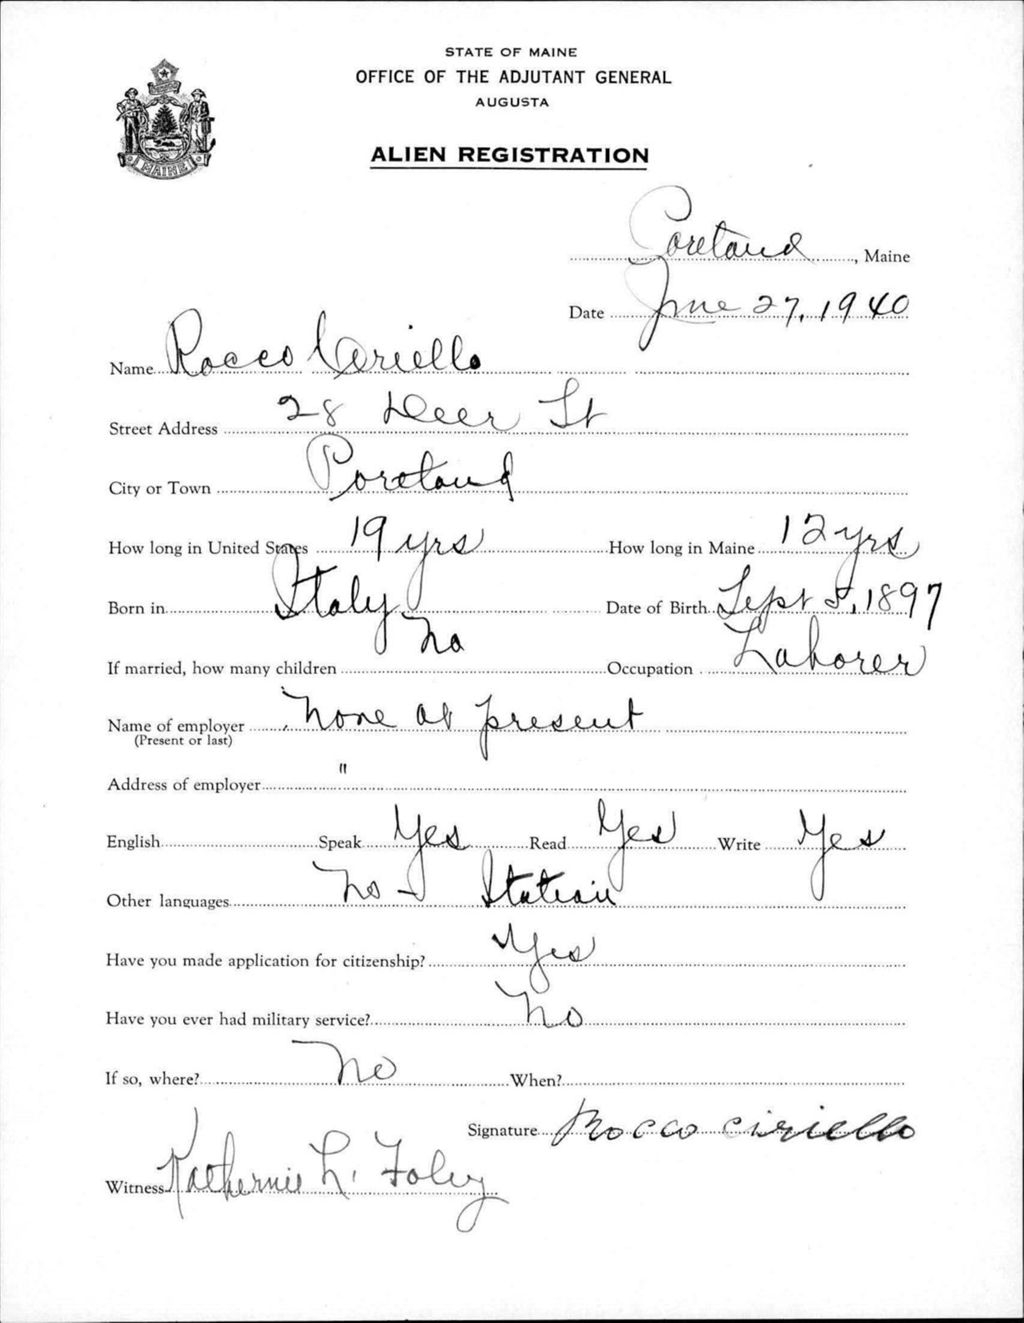 STATE OF MAINE
OFFICE OF THE ADJUTANT GENERAL
AUGUSTA
ALIEN REGISTRATION
MAINE
Portland, Maine
Date June 27, 1940
Name Rocco Ciriello
Street Address 28 Deer St
City or Town Portland
How long in United States 19 yrs How long in Maine 12 yrs
Born in Italy Date of Birth Sept 5, 1897
If married, how many children No Occupation Laborer
Name of employer None at present
(Present or last)
Address of employer "
English Speak Yes Read Yes Write Yes
Other languages No - Italian
Have you made application for citizenship? Yes
Have you ever had military service? No
If so, where? No When?
Signature Rocco Ciriello
Witness Katherine L. Foley